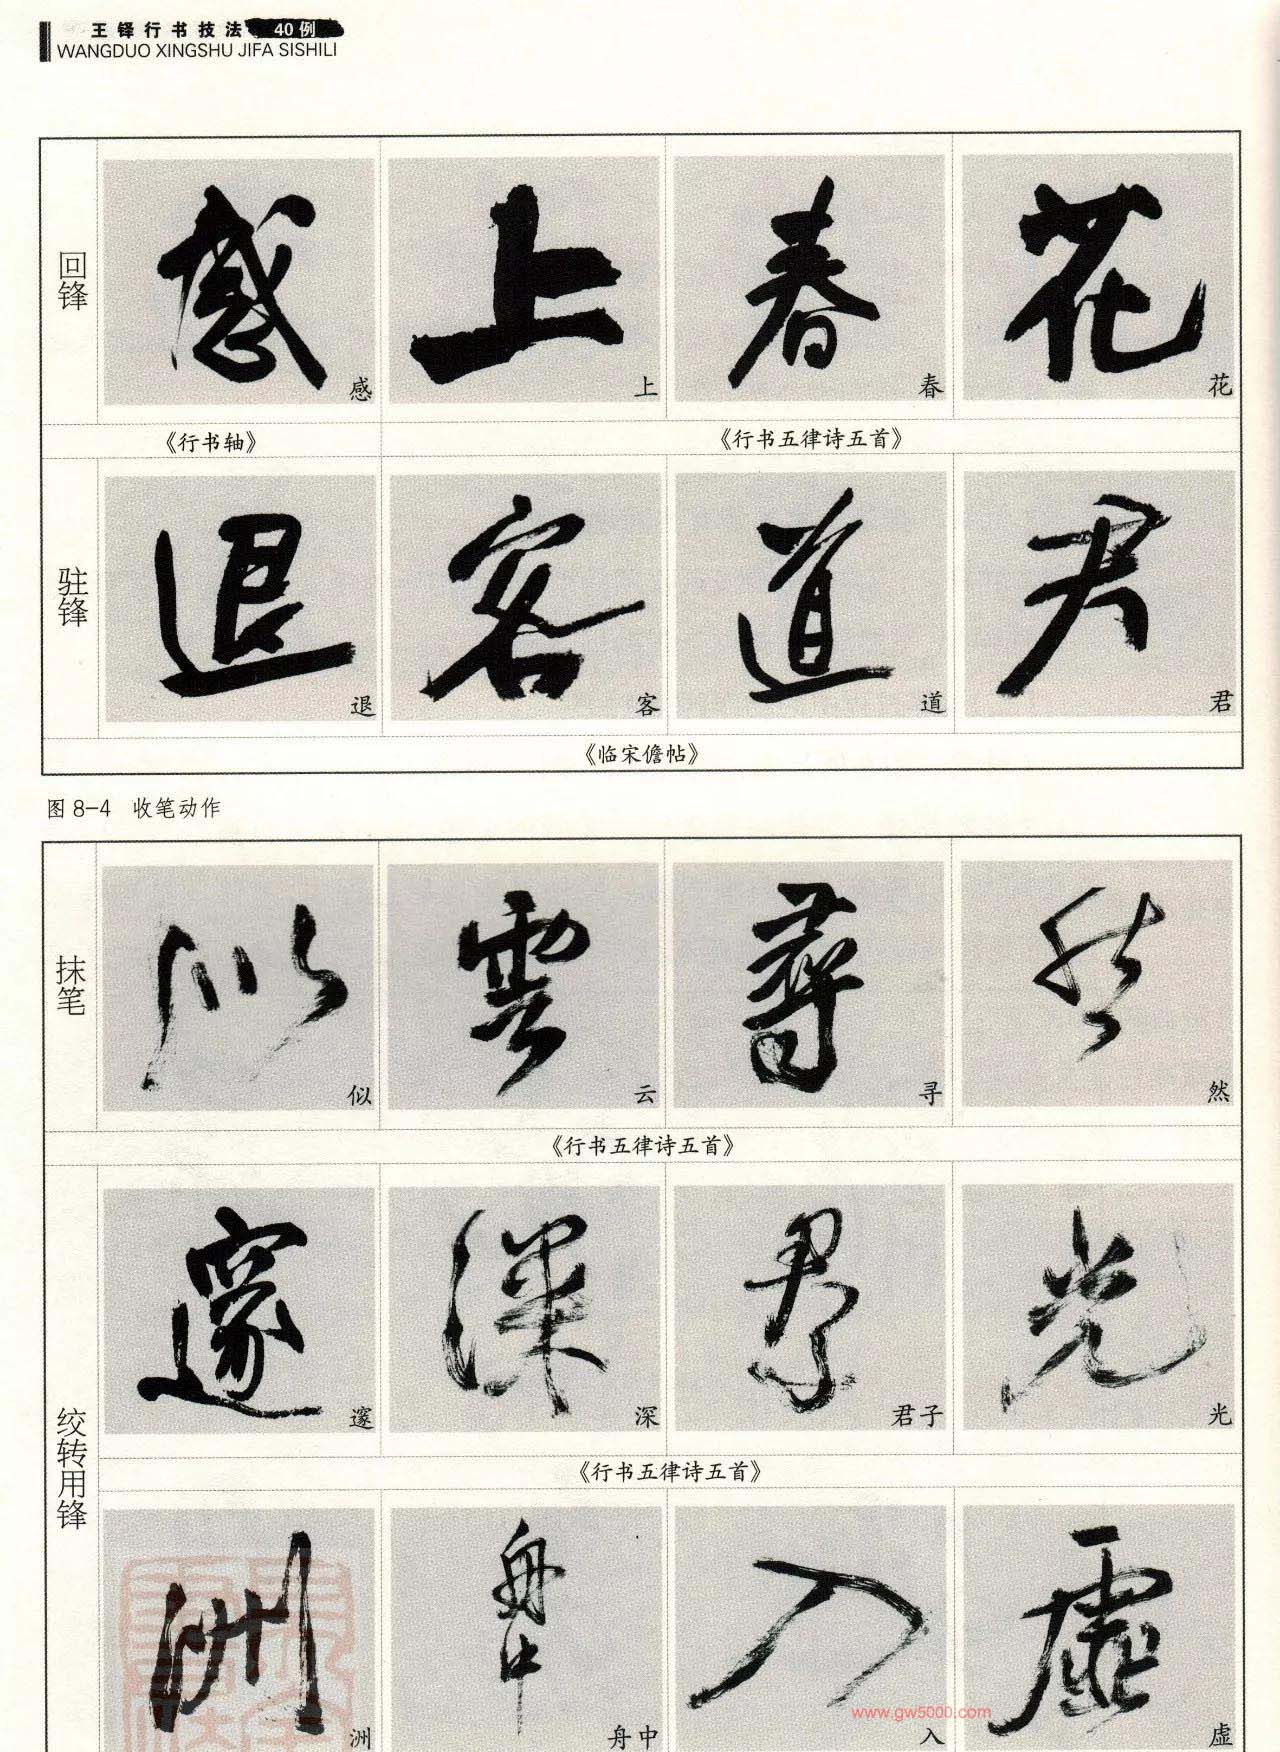 王铎行书技法 40例
WANGDUO XINGSHU JIFA SISHILI
回锋
感 上 春 花
《行书轴》 《行书五律诗五首》
驻锋
退 客 道 君
《临宋儋帖》
图 8-4 收笔动作
抹笔
似 云 寻 然
《行书五律诗五首》
绞转用锋
邃 深 君子 光
《行书五律诗五首》
洲 舟中 入 虚
www.gw5000.com